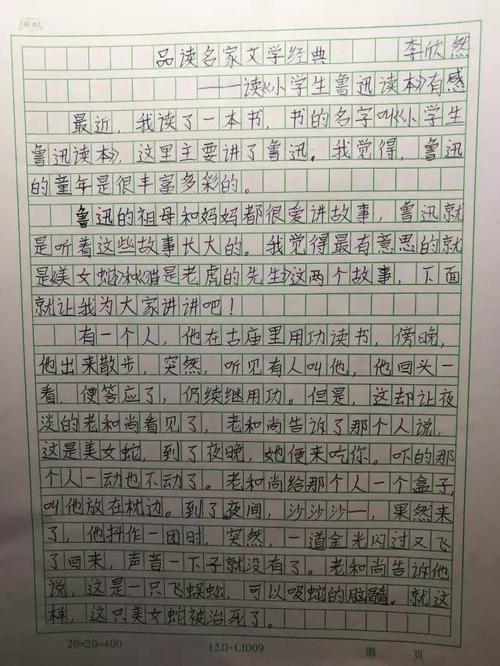 品读名家文学经典 李欣然
——读《小学生鲁迅读本》有感
最近，我读了一本书，书的名字叫《小学生
鲁迅读本》，这里主要讲了鲁迅。我觉得，鲁迅
的童年是很丰富多彩的。
鲁迅的祖母和妈妈都很爱讲故事，鲁迅就
是听着这些故事长大的。我觉得最有意思的就
是《美女蛇》和《猫是老虎的先生》这两个故事，下面
就让我为大家讲讲吧！
有一个人，他在古庙里用功读书，傍晚，
他出来散步，突然，听见有人叫他，他回头一
看，便答应了，仍续继用功。但是，这却让夜
淡的老和尚看见了，老和尚告诉了那个人说，
这是美女蛇，到了夜晚，她便来吃你。吓的那
个人一动也不动了。老和尚给那个人一个盒子，
叫他放在枕边。到了夜间，沙沙沙——，果然来
了，他抖作一团时，突然，一道金光闪过又飞
了回来，声音一下子就没有了。老和尚告诉他
说，这是一只飞蜈蚣，可以吸蛇的脑髓。就这
样，这只美女蛇被治死了。
20×20=400 15D·Cf009 第 页